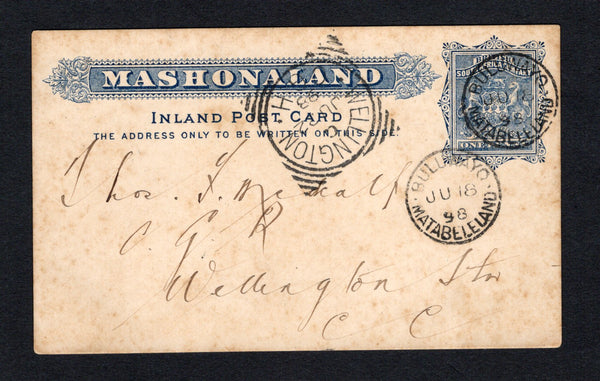 MASHONALAND
INLAND POST CARD
THE ADDRESS ONLY TO BE WRITTEN ON THIS SIDE.
BRITISH
SOUTH AFRICA COMPANY
ONE
BULUWAYO
JU 18
98
MATABELELAND
WELLINGTON
BULUWAYO
JU 18
98
MATABELELAND
Thos. F. Metcalf
C. G. R
Wellington Stn
C C